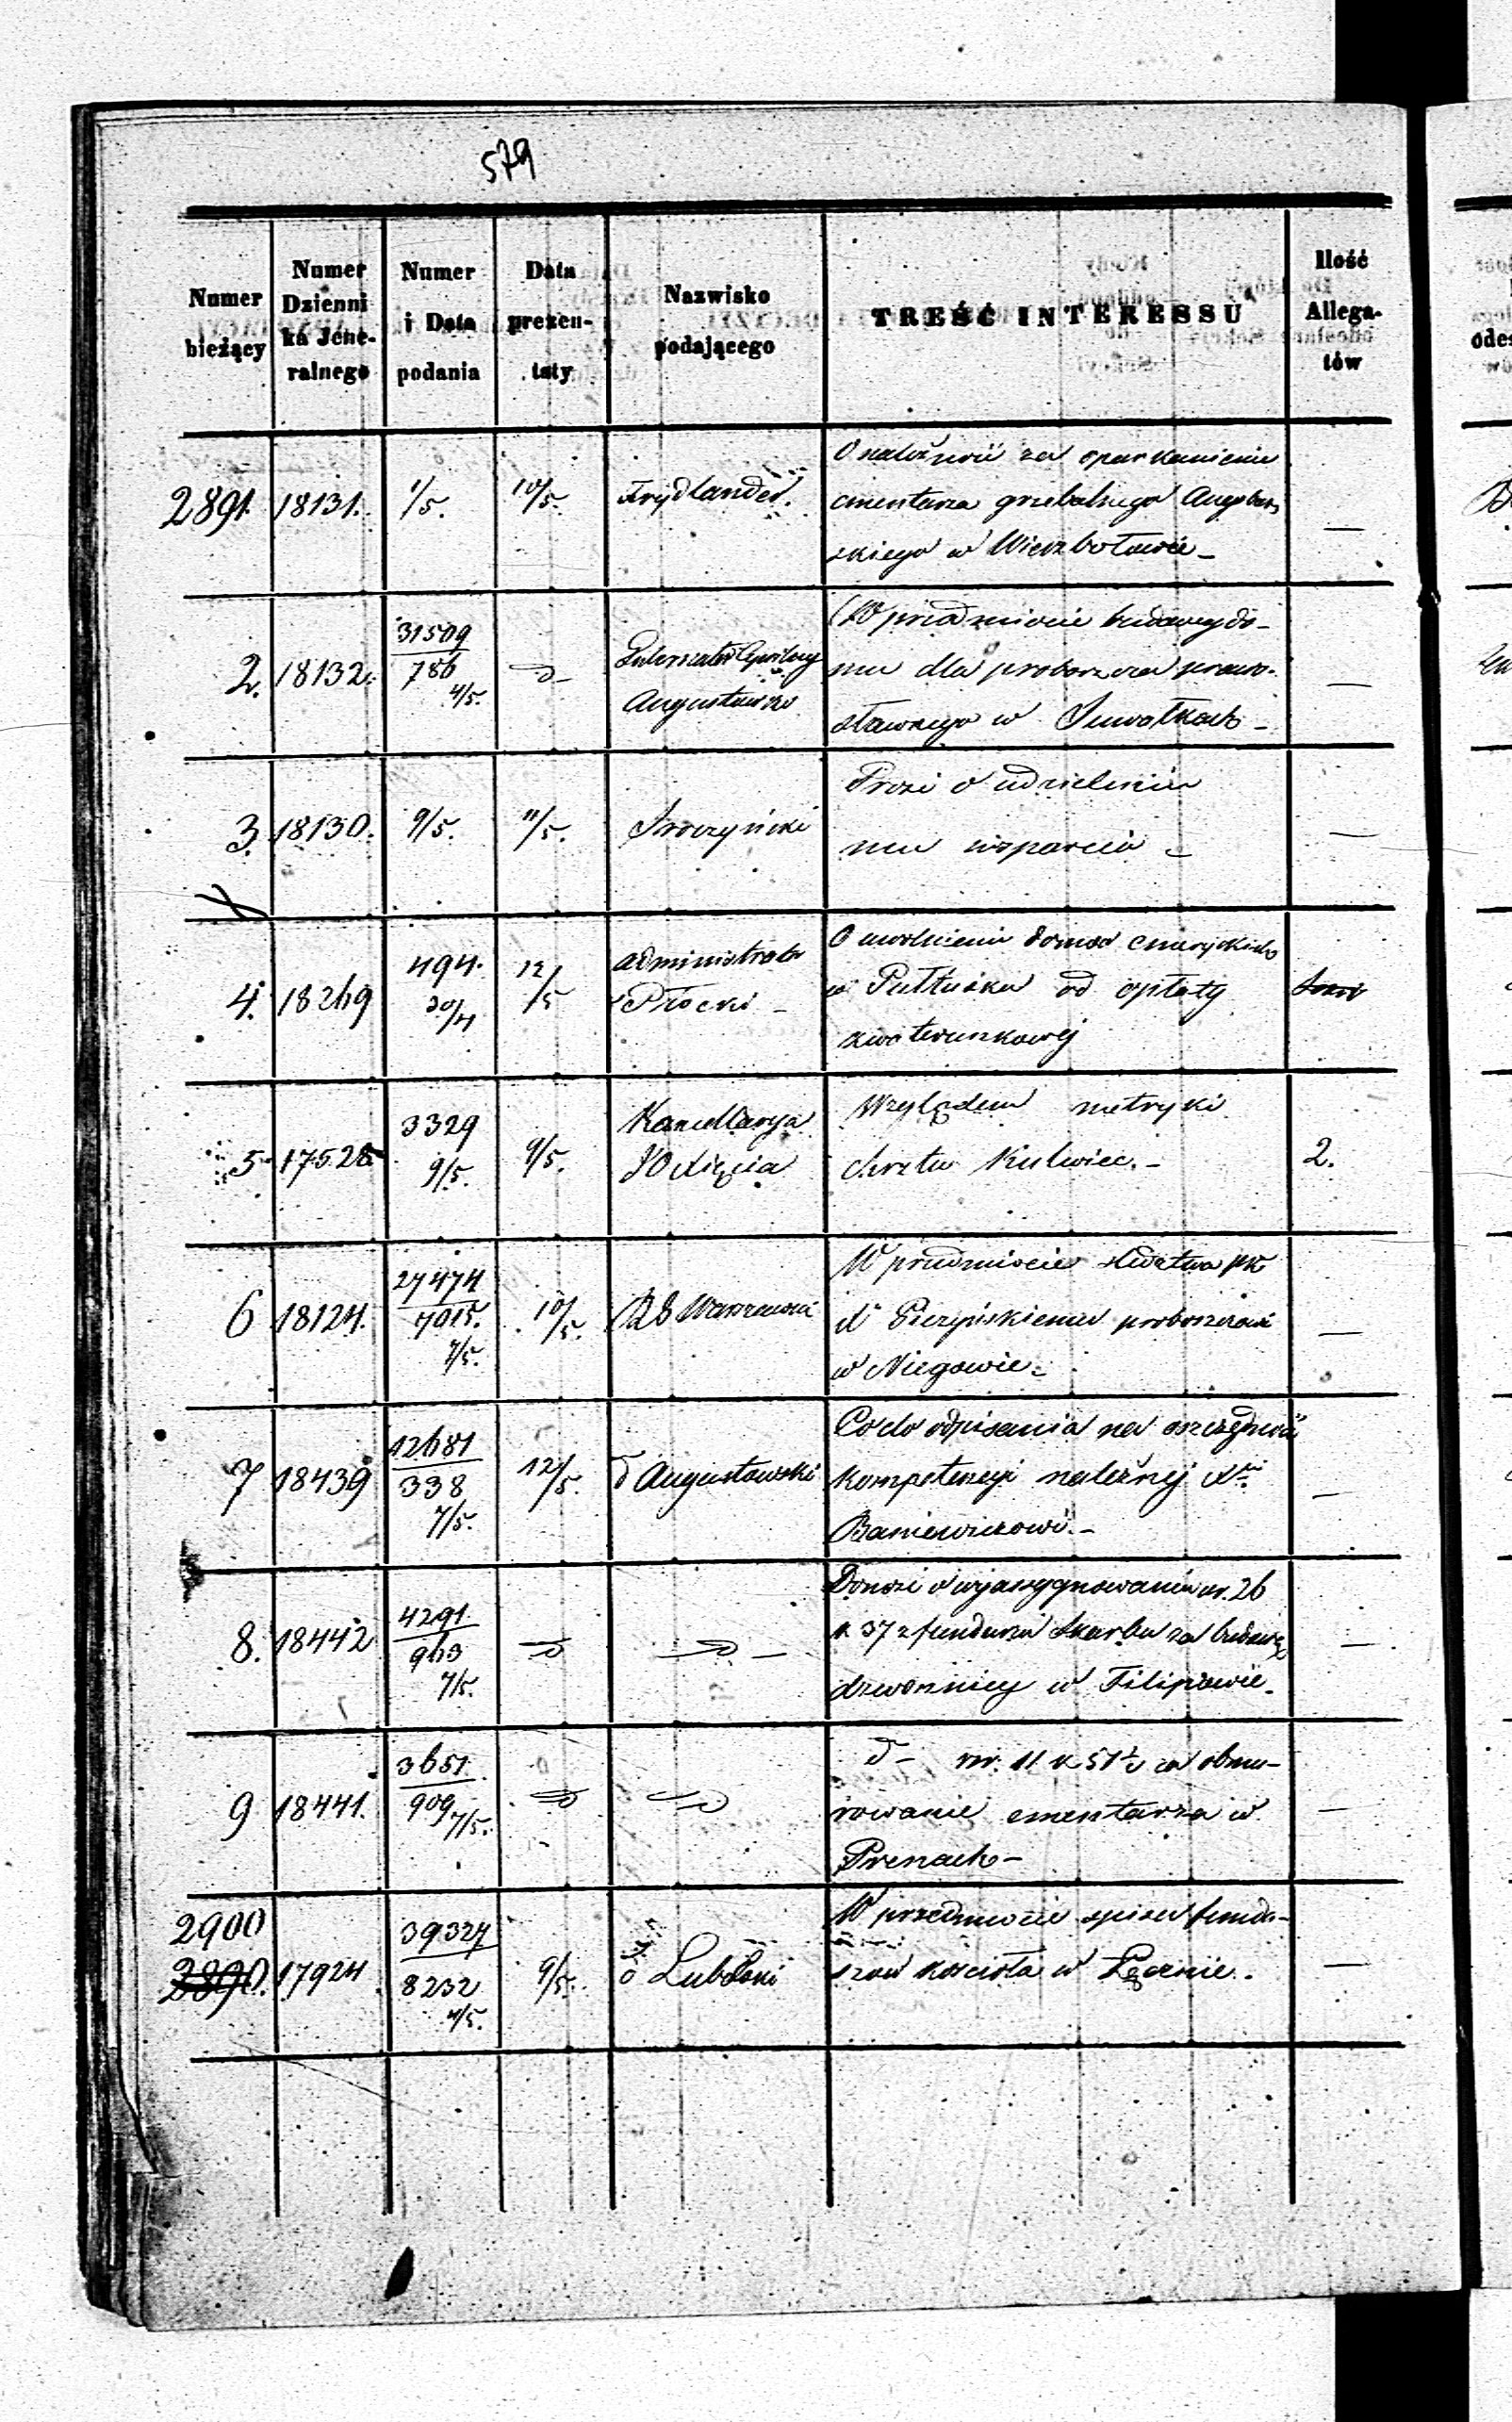 579
Numer bieżący | Numer Dzienni ka Jene- ralnego | Numer i Data podania | Data prezen- taty | Nazwisko podającego | TREŚĆ INTERESSU | Ilość Allega- tów
2891. 18131. 1/5. 10/5. Frydlander. O należność za oparkanienie
cmentarza grzebalnego Augsbur
skiego w Wierzbołowie —
2. 18132. 31509/786 4/5. d- Gubernator Cywilny Augustowski W przedmiocie budowy do-
mu dla proboszcza prawo-
sławnego w Suwałkach —
3. 18130. 9/5. 11/5. Prosi o udzielenie
mu wsparcia —
4. 18269 494. 30/4 12/5 Administrator Płocki — O uwolnienie domów emeryckich
w Pułtusku od opłaty
kwaterunkowej
5. 17525 3329 9/5. 9/5. Kancellarya JO Xięcia Względem metryki 2.
chrztu Kulwiec. —
6 18124. 27474/7015. 7/5. 10/5. RG Warszawski W przedmiocie śledztwa pko
X Pierzyńskiemu proboszczowi
w Niegowie —
7 18439 12681/338 7/5. 12/5. d Augustowski Co do odpisania na oszczędność
kompetencyi należnej Xu
Baniewiczowi. —
8. 18442 4291/963 7/5. d d — Donosi o wyassygnowaniu rs. 26
k 37 z funduszu Skarbu za budowę
dzwonnicy w Filipowie —
9 18441. 3651/909 7/5. d d d — rs. 11 k 51½ za obmu-
rowanie cmentarza w
Prenach —
2900
2890. 17924 39327/8232 4/5. 9/5. d Lubelski W przedmiocie spisu fundu-
szów kościoła w Łęcznie.